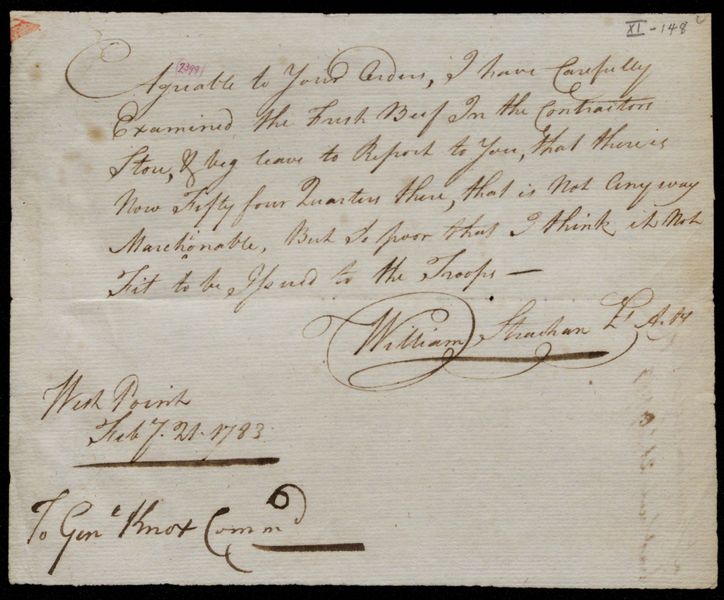 XI - 148
(2399)
Agreable to Your Orders, I have Carefully
Examined the Fresh Beef In the Contractors
Store, & beg leave to Report to You, that there is
Now Fifty four Quarters there, that is Not Any way
Marchønable, But So poor that I think it Not
Fit to be Issued to the Troops —
William Strachan Lt A. M
West Point
Feby. 21. 1783
To Genl Knox Commd